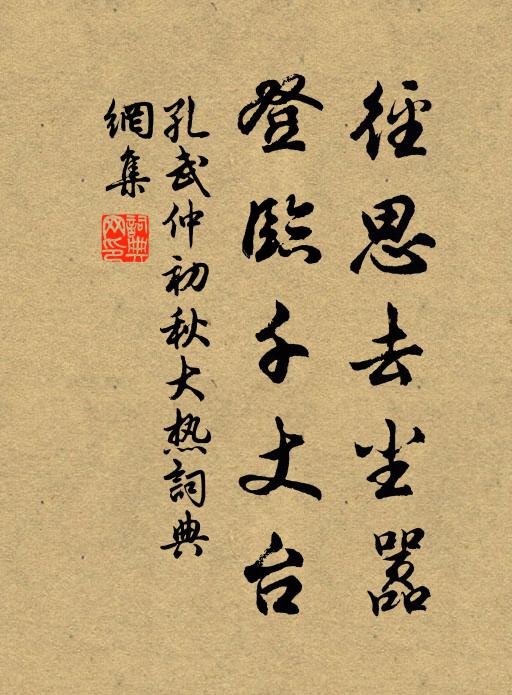 徑思去尘嚣
登臨千丈台
孔武仲初秋大热詞典
網集
詞典网印